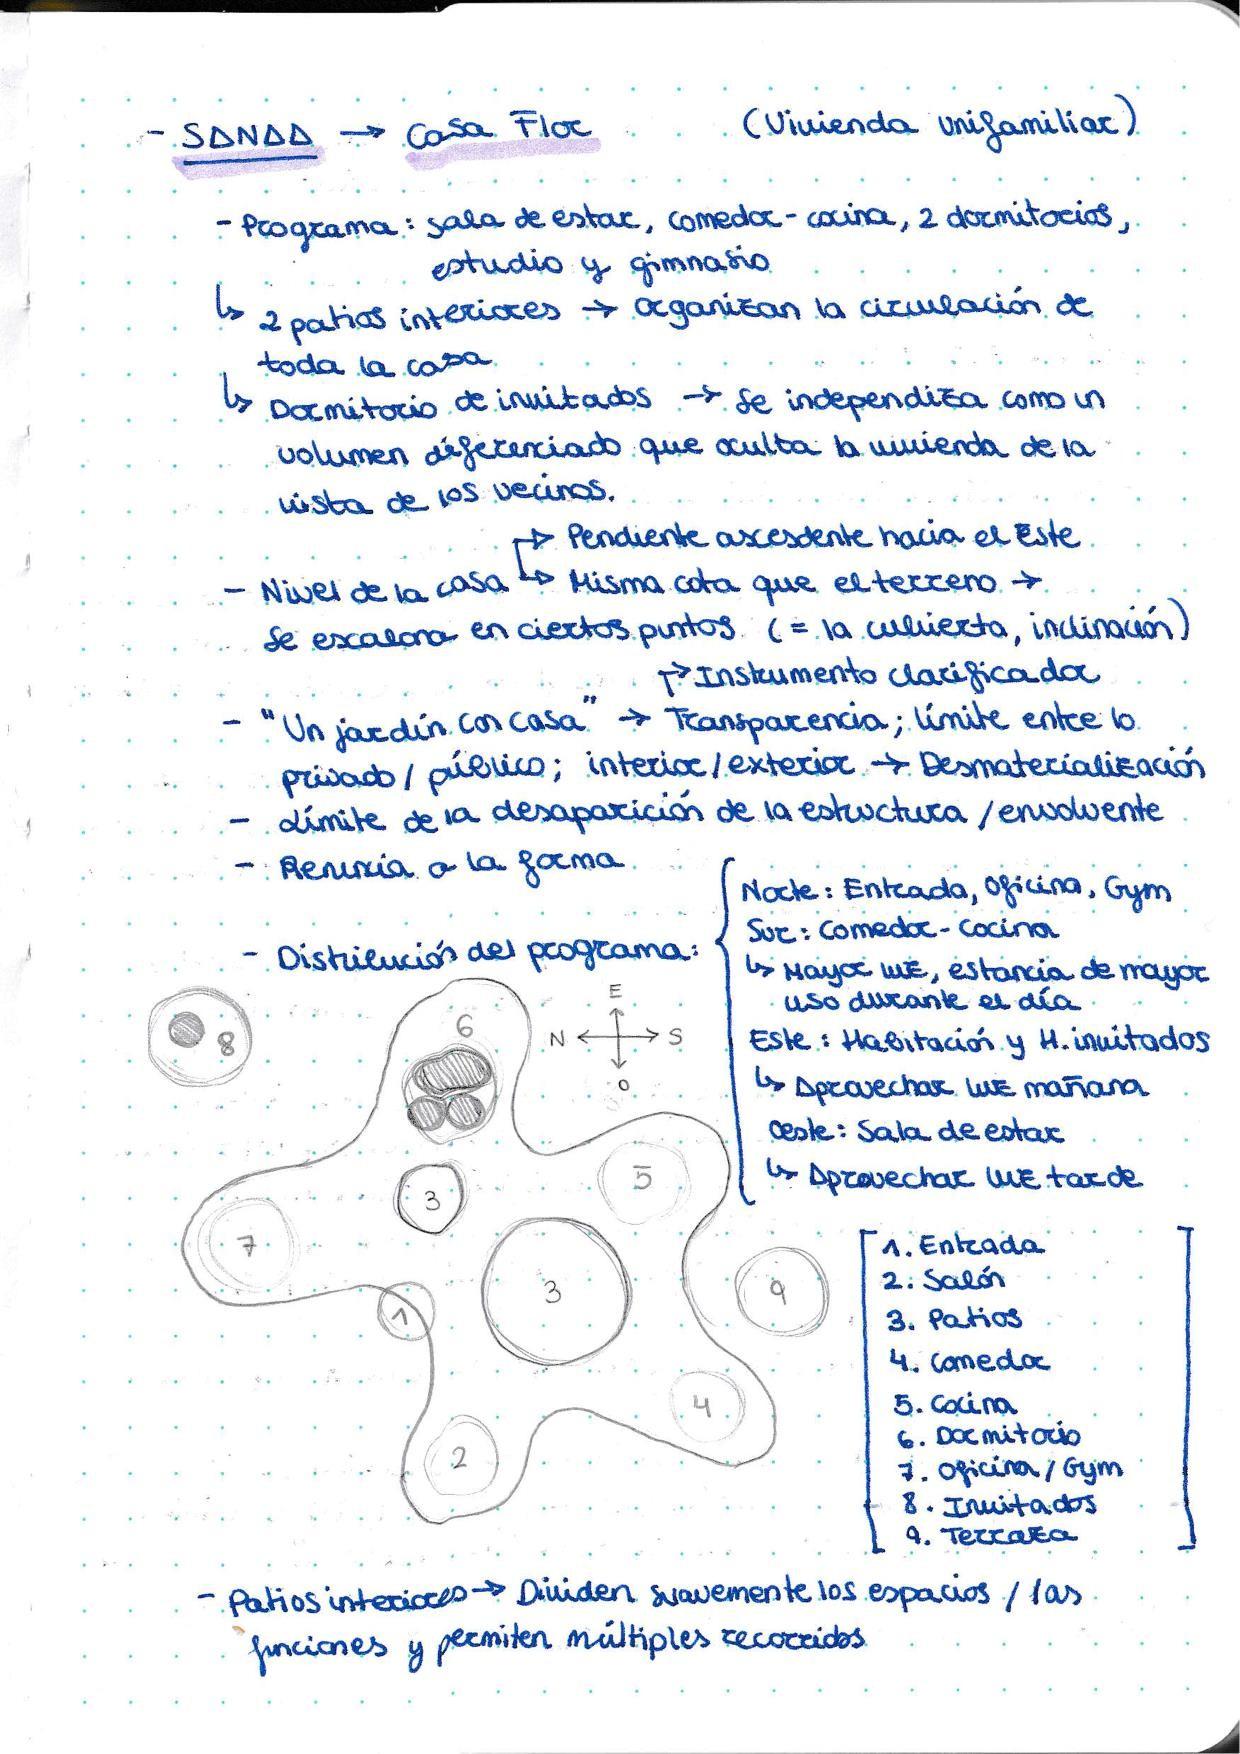 - SANAA → Casa Flor (Vivienda unifamiliar)
- Programa: sala de estar, comedor-cocina, 2 dormitorios,
estudio y gimnasio
↳ 2 patios interiores → organizan la circulación de
toda la casa
↳ Dormitorio de invitados → Se independiza como un
volumen diferenciado que oculta la vivienda de la
vista de los vecinos.
→ Pendiente ascendente hacia el Este
- Nivel de la casa → Misma cota que el terreno →
Se escalona en ciertos puntos (= la cubierta, inclinación)
↱ Instrumento clarificador
- "Un jardín con casa" → Transparencia; límite entre lo
privado / público; interior/exterior → Desmaterialización
- Límite de la desaparición de la estructura / envolvente
- Renuncia a la forma
- Distribución del programa:
Norte: Entrada, Oficina, Gym
Sur: Comedor-Cocina
↳ Mayor luz, estancia de mayor
uso durante el día
Este: Habitación y H. invitados
↳ Aprovechar luz mañana
Oeste: Sala de estar
↳ Aprovechar luz tarde
E
N S
O
8
6
3
5
7
1
3
9
4
2
1. Entrada
2. Salón
3. Patios
4. Comedor
5. Cocina
6. Dormitorio
7. Oficina / Gym
8. Invitados
9. Terraza
- Patios interiores → Dividen suavemente los espacios / las
funciones y permiten múltiples recorridos